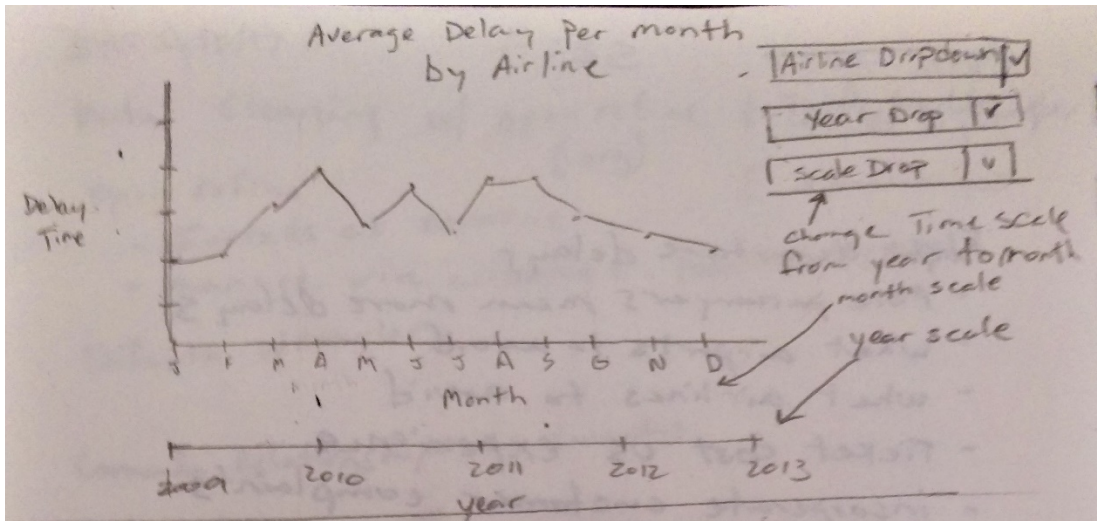 Average Delay Per month
by Airline
Airline Dropdown
Year Drop
Scale Drop
change Time scale
from year to month
month scale
year scale
Delay
Time
J F M A M J J A S O N D
Month
2009 2010 2011 2012 2013
year